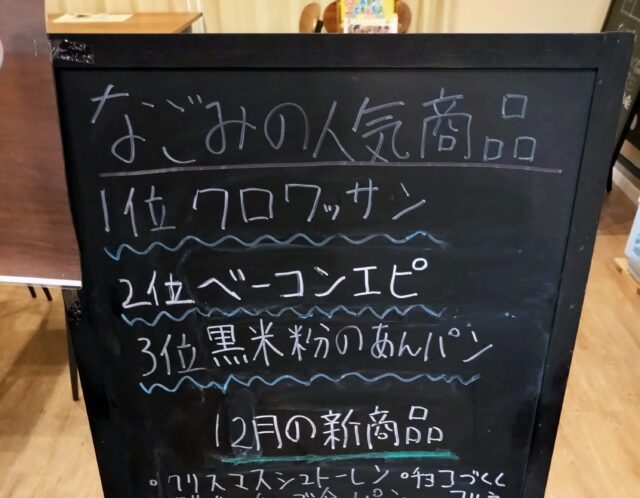 なごみの人気商品
1位 クロワッサン
2位 ベーコンエピ
3位 黒米粉のあんパン
12月の新商品
・クリスマスシュトーレン ・チョコづくし